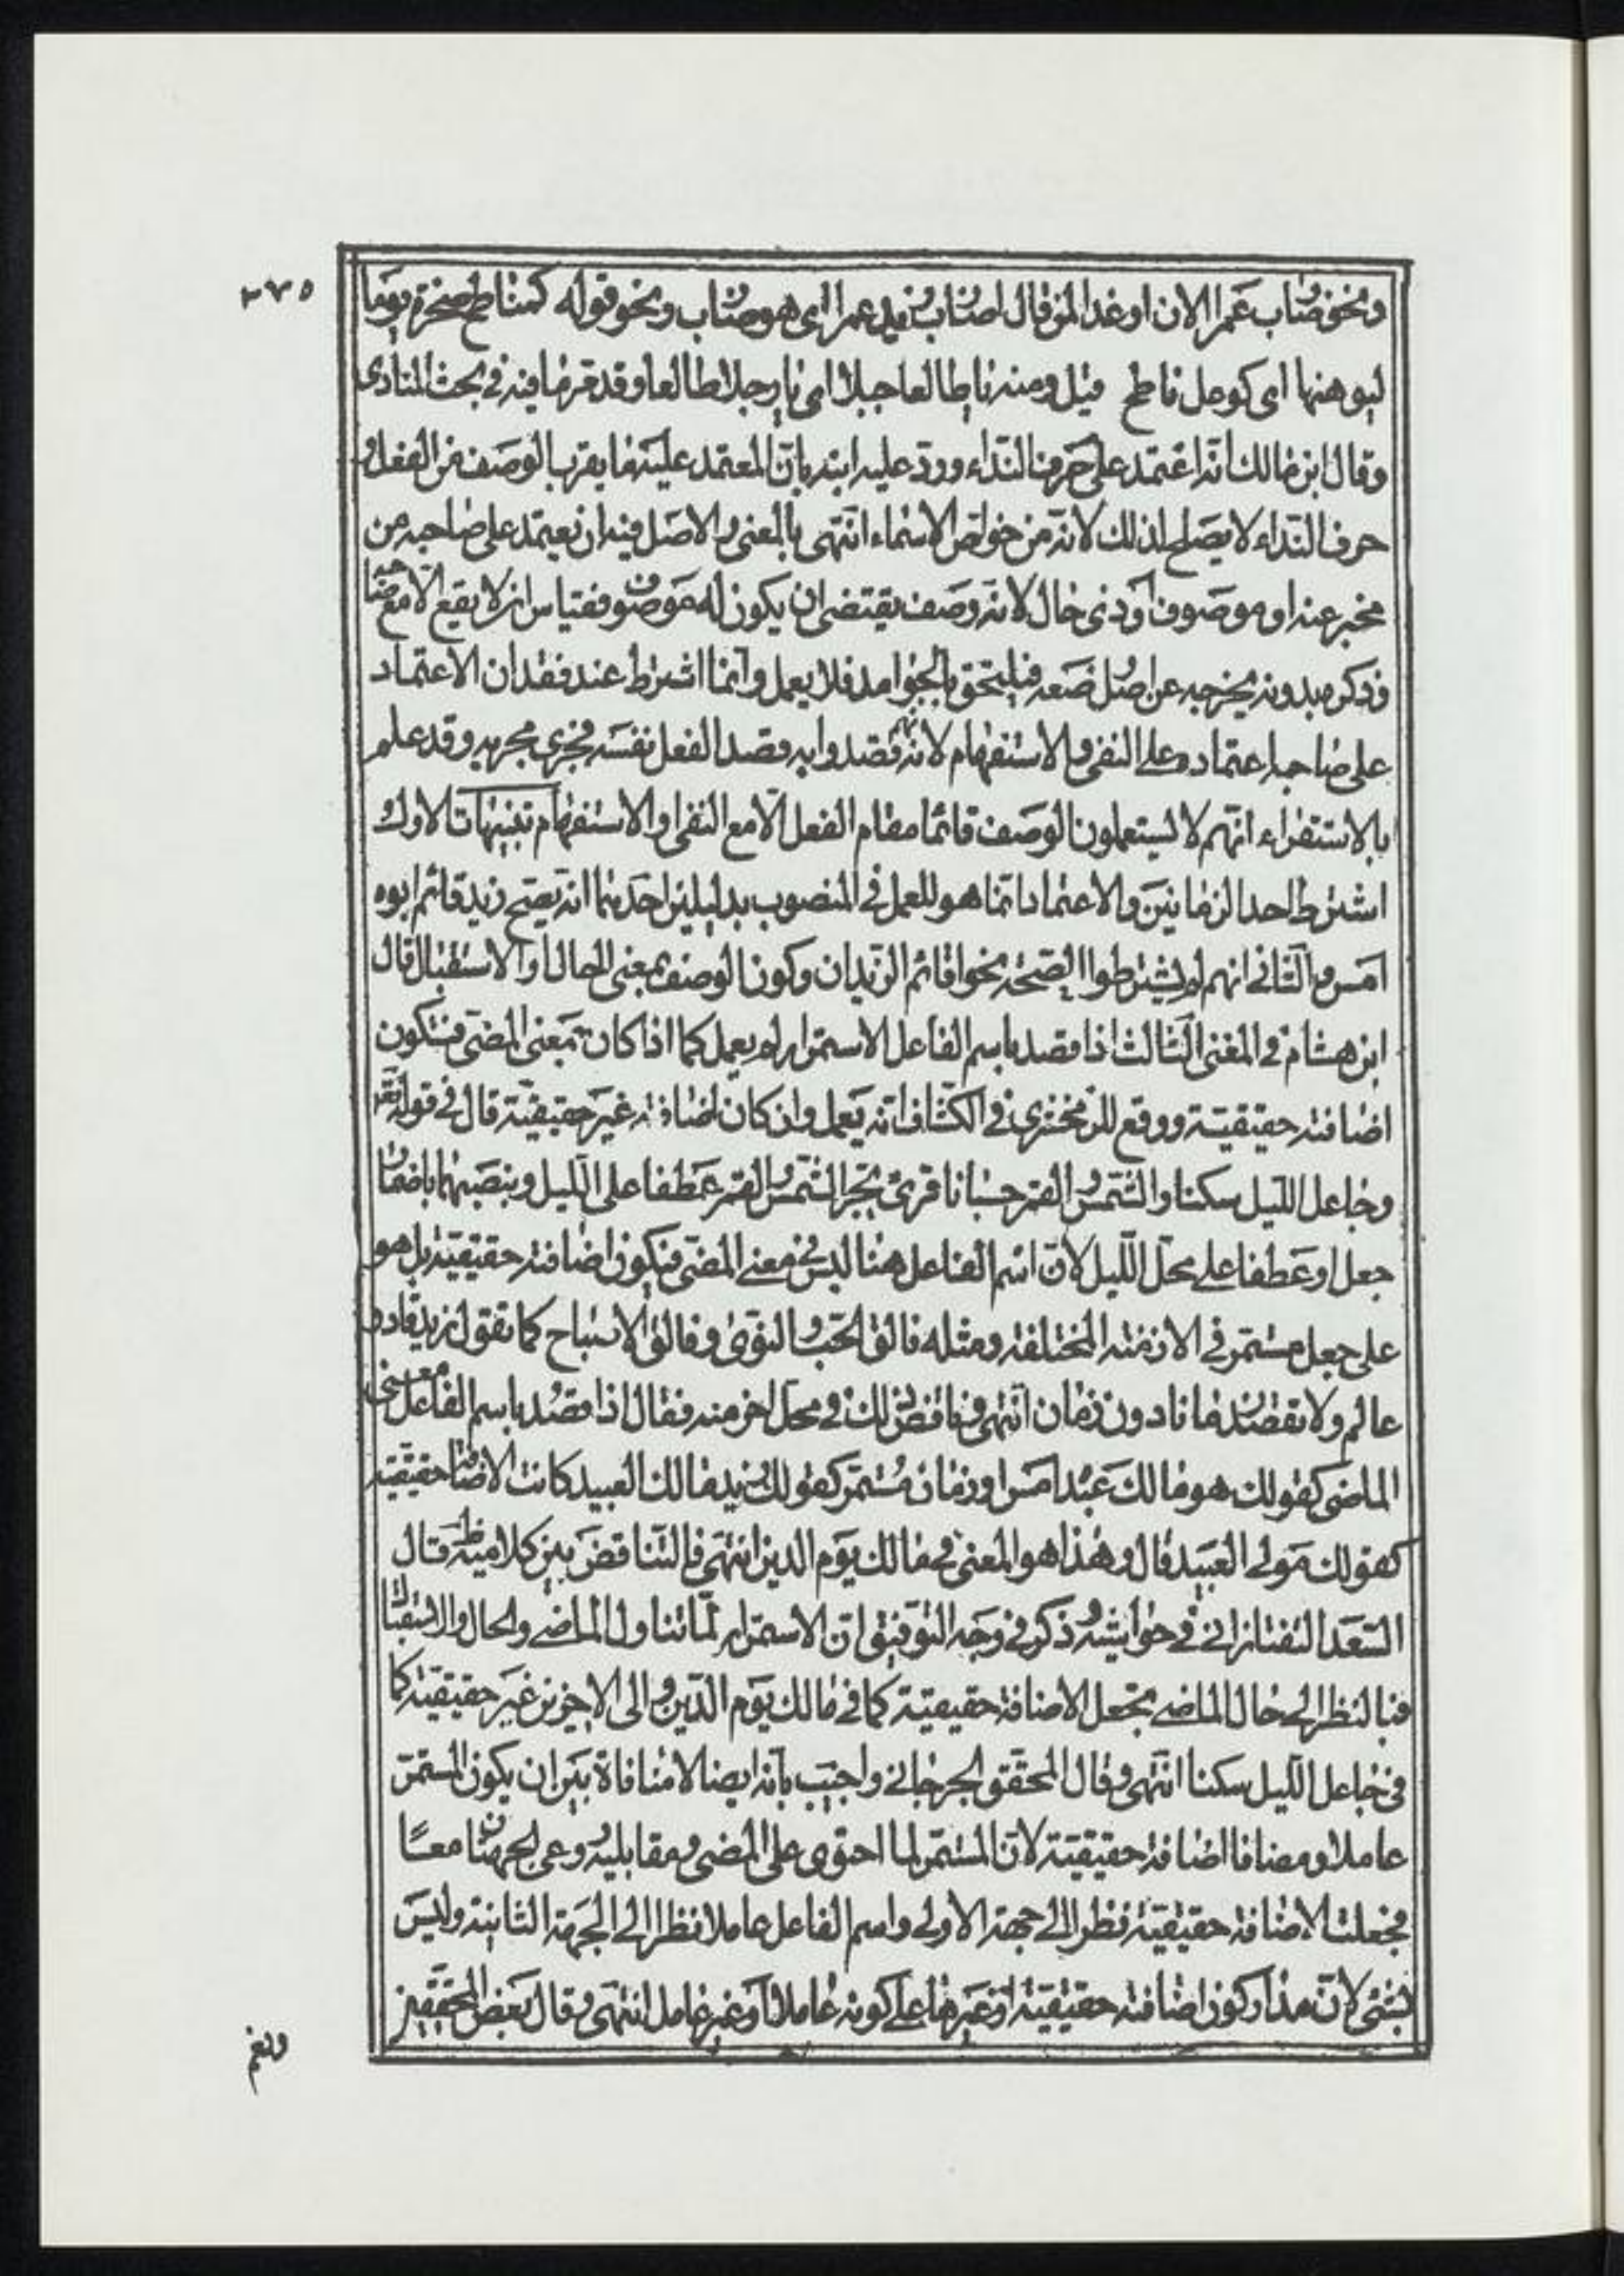 ٢٧٥
ونحو ضارب عمرا الان او غدا لمن قال اضارب زيد عمرا اى هو ضارب ونحو قوله كناطح صخرة يوما
ليوهنها اى كوعل ناطح قيل ومنه يا طالعا جبلا اى يا رجلا طالعا وقد عرفت ما فيه في بحث المنادى
وقال ابن مالك انه اعتمد على حرف النداء ورد عليه ابنه بان المعتمد عليه ما يقرب الوصف من الفعل و
حرف النداء لا يصلح لذلك لانه من خواص الاسماء انتهى بالمعنى والاصل فيه ان يعتمد على صاحبه من
مخبر عنه او موصوف او ذى حال لانه وصف يقتضى ان يكون له موصوف فقياس ان لا يقع الا مع صاحبه
وذكره بدونه يخرجه عن اصل وضعه فيلتحق بالجوامد فلا يعمل وانما اشترط عند فقدان الاعتماد
على صاحبه اعتماده على النفى والاستفهام لانه قصدوا به قصد الفعل نفسه فجرى مجريه وقد علم
بالاستقراء انهم لا يستعملون الوصف قائما مقام الفعل الا مع النفى او الاستفهام تنبيهات الاول
اشتراط احد الزمانين والاعتماد انما هو للعمل في المنصوب بدليلين احدهما انه يصح زيد قائم ابوه
امس والثانى انهم لم يشترطوا لصحة نحو اقائم الزيدان وكون الوصف بمعنى الحال او الاستقبال قال
ابن هشام في المغنى الثالث اذا قصد باسم الفاعل الاستمرار لم يعمل كما اذا كان بمعنى المضى فتكون
اضافته حقيقية ووقع للزمخشرى في الكشاف انه يعمل وان كان اضافته غير حقيقية قال في قوله تعالى
وجاعل الليل سكنا والشمس والقمر حسبانا قرئ بجر الشمس والقمر عطفا على الليل وبنصبهما باضمار
جعل او عطفا على محل الليل لان اسم الفاعل هنا ليس في معنى المضى فتكون اضافته حقيقية بل هو
على جعل مستمر في الازمنة المختلفة ومثله فالق الحب والنوى وفالق الاصباح كما تقول زيد قادر
عالم ولا تقصد زمانا دون زمان انتهى وناقض ذلك في محل اخر منه فقال اذا قصد باسم الفاعل معنى
الماضى كقولك هو مالك عبده امس او زمان مستمر كقولك زيد مالك العبيد كانت الاضافة حقيقية
كقولك مولى العبيد قال وهذا هو المعنى في مالك يوم الدين انتهى فالتناقض بين كلاميه ظ قال
السعد التفتازانى في حواشيه ذكر في وجه التوفيق ان الاستمرار لما تناول الماضى والحال والاستقبال
فبالنظر الى حال الماضى تجعل الاضافة حقيقية كما في مالك يوم الدين والى الاخيرين غير حقيقية كما
في جاعل الليل سكنا انتهى وقال المحقق الجرجانى واجيب بانه ايضا لا منافاة بين ان يكون المستمر
عاملا ومضافا اضافة حقيقية لان المستمر لما احتوى على المضى ومقابليه روعى الجهتان معا
فجعلت الاضافة حقيقية نظرا الى جهته الاولى واسم الفاعل عاملا نظرا الى الجهة الثانية وليس
بشئ لان مدار كون اضافته حقيقية او غيرها على كونه عاملا او غير عامل انتهى وقال بعض المحققين